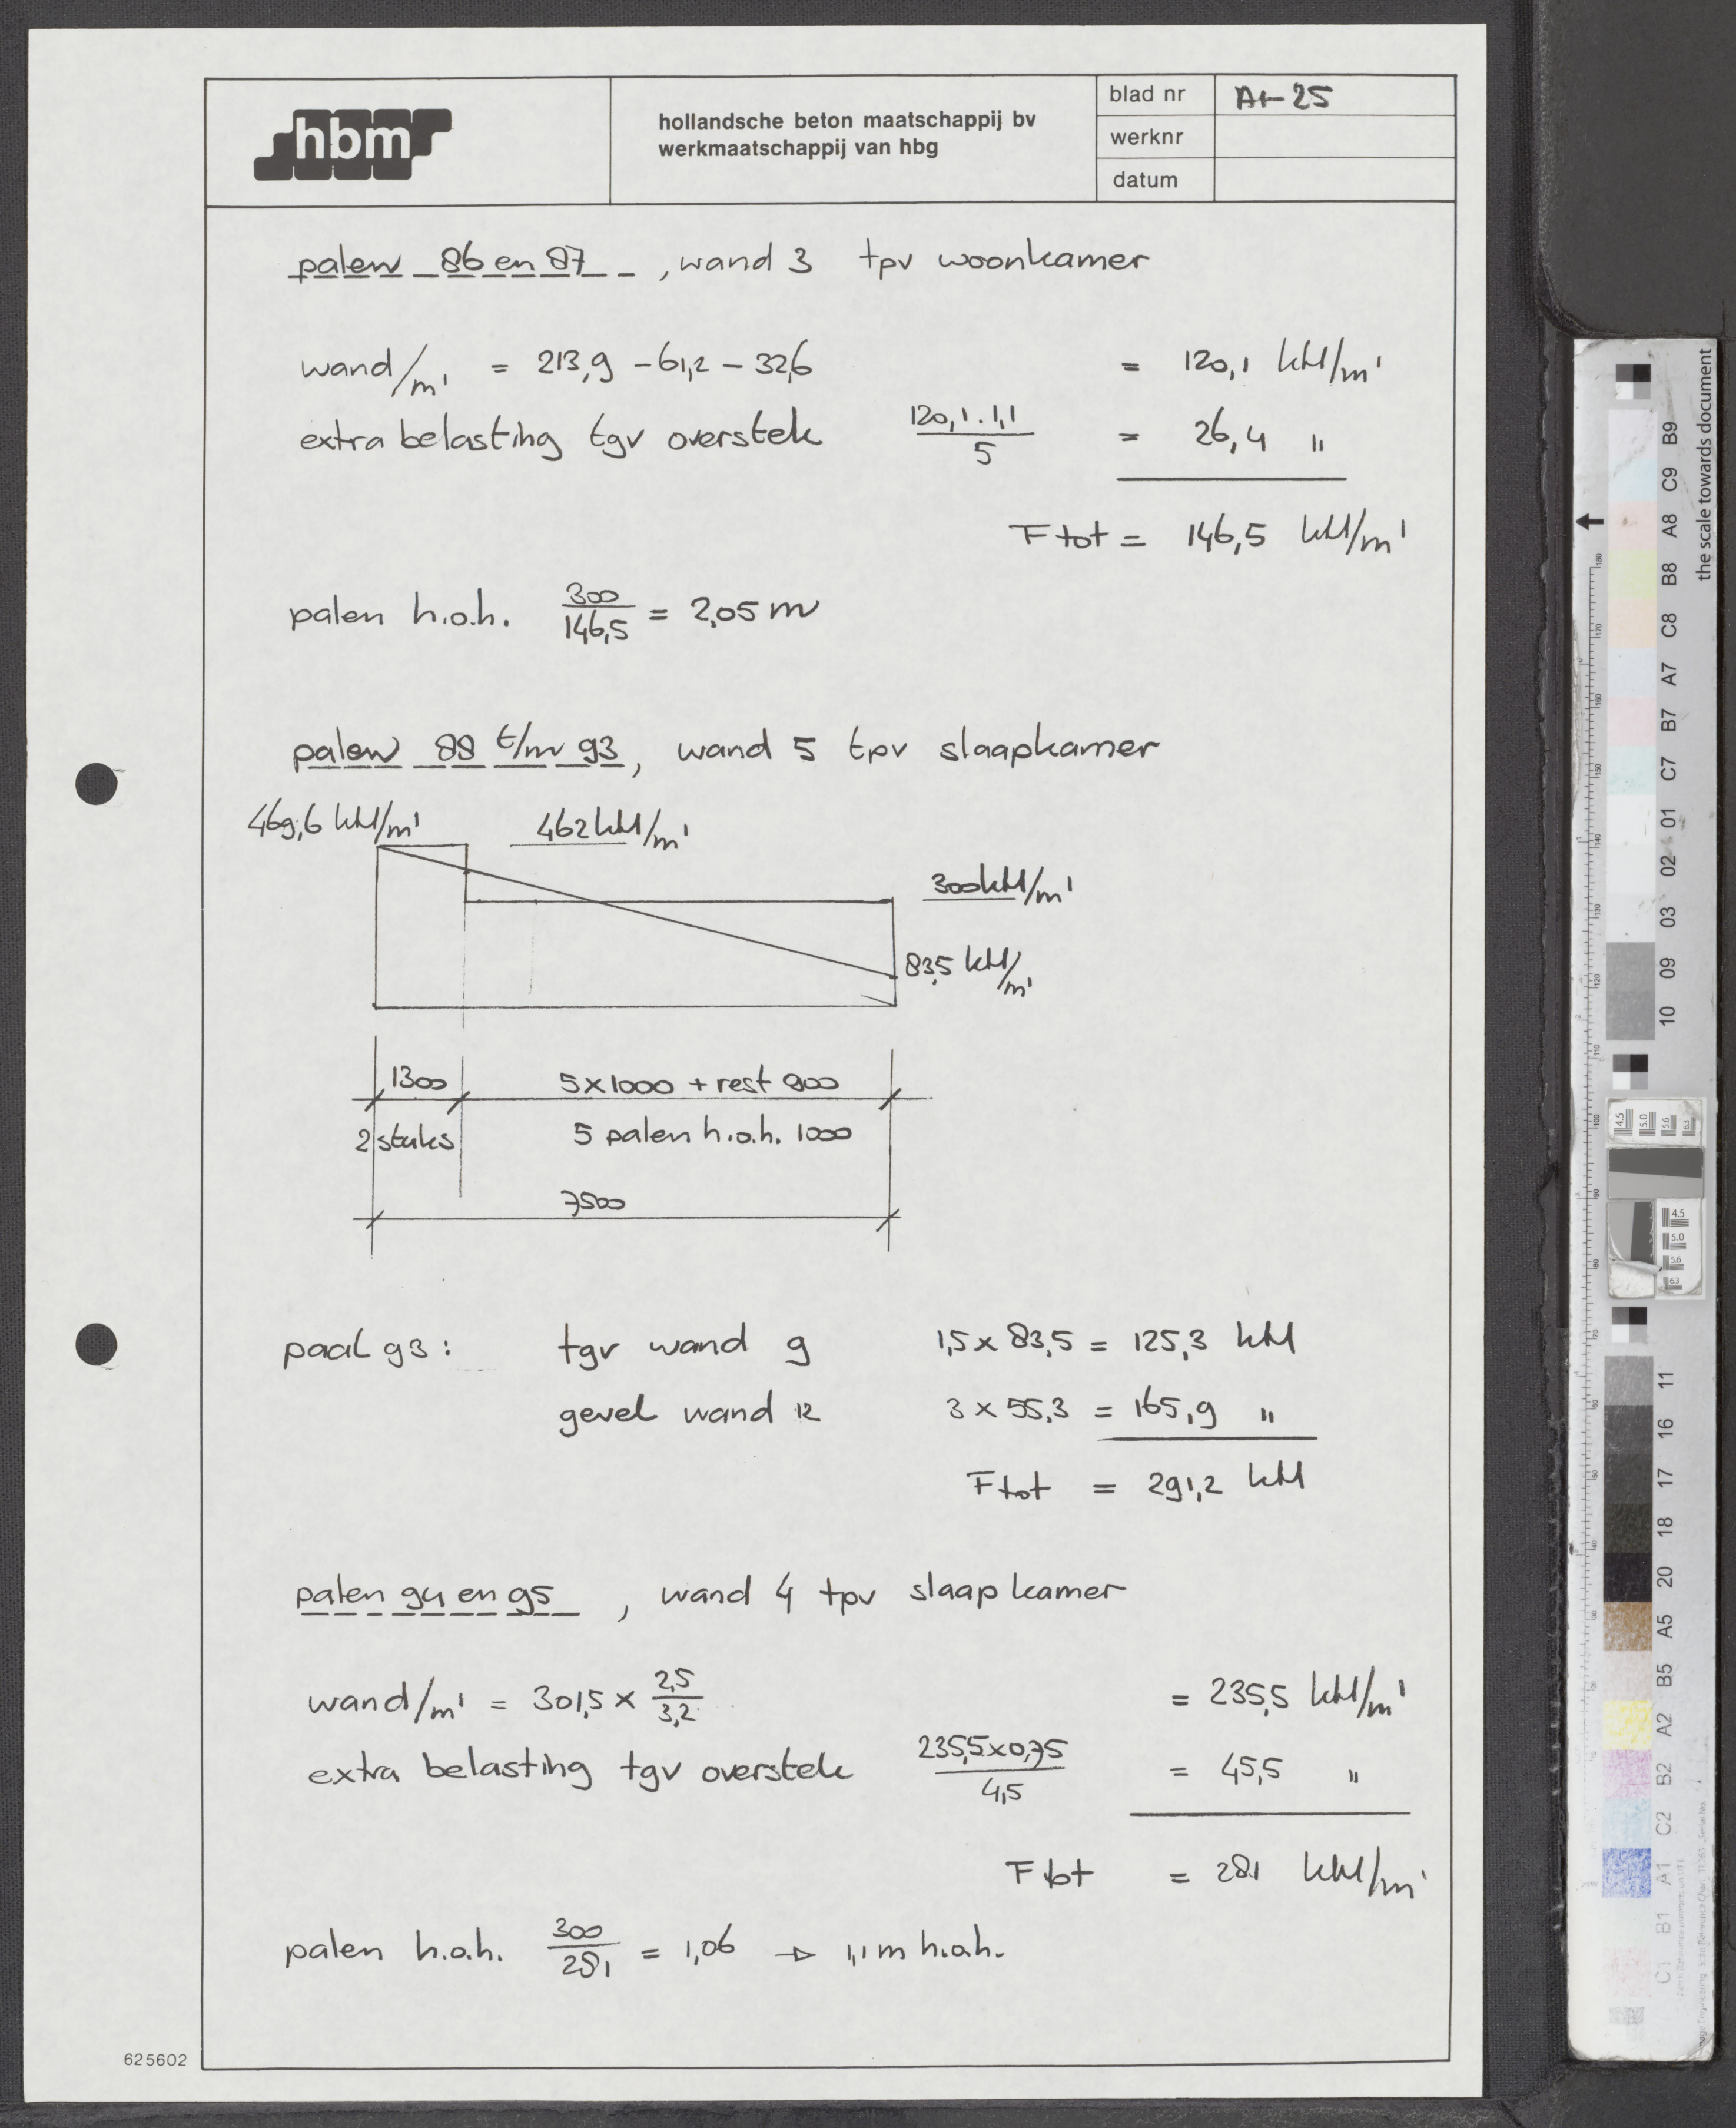 hbm
hollandsche beton maatschappij bv
werkmaatschappij van hbg
blad nr A1-25
werknr
datum
palen 86 en 87, wand 3 tpv woonkamer
wand/m' = 213,9 - 61,2 - 32,6 = 120,1 kN/m'
extra belasting tgv overstek 120,1 . 1,1 / 5 = 26,4 "
F tot = 146,5 kN/m'
palen h.o.h. 300/146,5 = 2,05 m
palen 88 t/m 93, wand 5 tpv slaapkamer
469,6 kN/m' 462 kN/m'
300 kN/m'
83,5 kN/m'
1300 5x1000 + rest 900
2 stuks 5 palen h.o.h. 1000
7500
paal 93: tgv wand 9 1,5 x 83,5 = 125,3 kN
gevel wand 12 3 x 55,3 = 165,9 "
F tot = 291,2 kN
palen 94 en 95, wand 4 tpv slaapkamer
wand/m' = 301,5 x 2,5/3,2 = 235,5 kN/m'
extra belasting tgv overstek 235,5 x 0,75 / 4,5 = 45,5 "
F tot = 281 kN/m'
palen h.o.h. 300/281 = 1,06 → 1,1 m h.o.h.
625602
the scale towards document
B9
C9
A8
B8
C8
A7
B7
C7
01
02
03
09
10
11
16
17
18
20
A5
B5
A2
B2
C2
A1
B1
C1